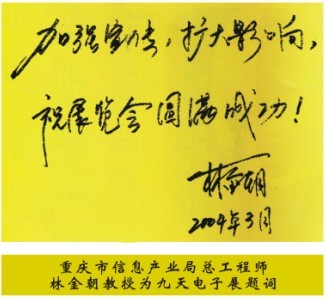 加强宣传，扩大影响，
祝展览会圆满成功！
林金朝
2004年3月
重庆市信息产业局总工程师
林金朝教授为九天电子展题词